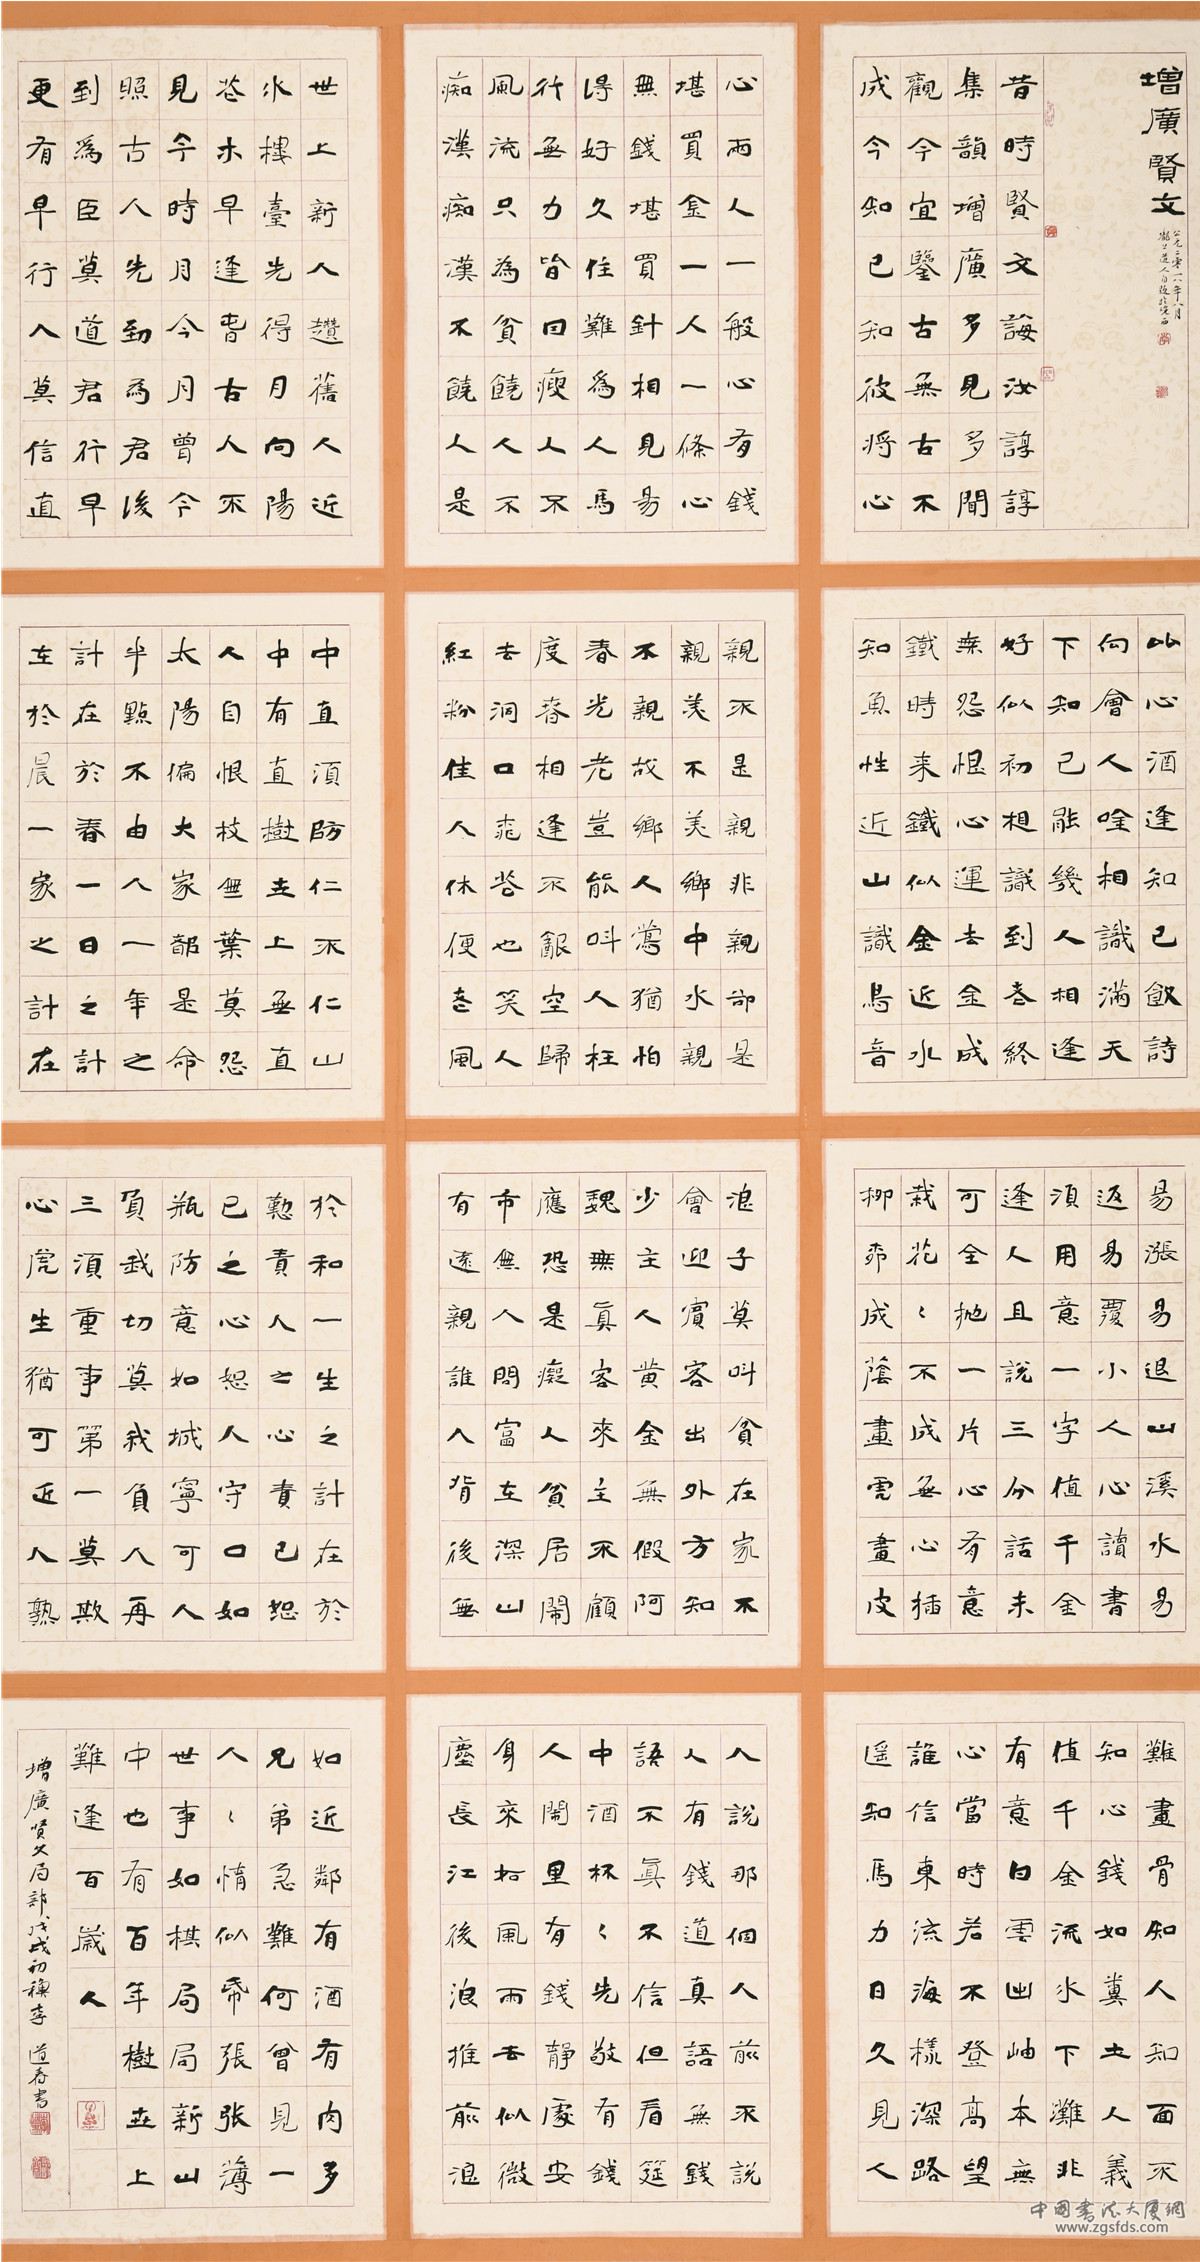 增廣賢文
公元二零一八年八月
昔時賢文誨汝諄諄
集韻增廣多見多聞
觀今宜鑒古無古不
成今知己知彼將心
比心酒逢知己飲詩
向會人吟相識滿天
下知己能幾人相逢
好似初相識到老終
無怨恨心運去金成
鐵時來鐵似金近水
知魚性近山識鳥音
易漲易退山溪水易
返易覆小人心讀書
須用意一字值千金
逢人且說三分話未
可全拋一片心有意
栽花〻不成無心插
柳柳成蔭畫虎畫皮
難畫骨知人知面不
知心錢如糞土人義
值千金流水下灘非
有意白雲出岫本無
心當時若不登高望
誰信東流海樣深路
遙知馬力日久見人
心兩人一般心有錢
堪買金一人一條心
無錢堪買針相見易
得好久住難為人馬
行無力皆因瘦人不
風流只為貧饒人不
痴漢痴漢不饒人是
親不是親非親卻是
親美不美鄉中水親
不親故鄉人鶯猶怕
春光老豈能叫人枉
度春相逢不飲空歸
去洞口桃花也笑人
紅粉佳人休便老風
浪子莫叫貧在家不
會迎賓客出外方知
少主人黃金無假阿
魏無真客來主不顧
應恐是癡人貧居鬧
市無人問富在深山
有遠親誰人背後無
人說那個人前不說
人有錢道真語無錢
語不真不信但看筵
中酒杯〻先敬有錢
人鬧里有錢靜處安
身來如風雨去似微
塵長江後浪推前浪
世上新人趲舊人近
水樓臺先得月向陽
花木早逢春古人不
見今時月今月曾今
照古人先到為君後
到為臣莫道君行早
更有早行人莫信直
中直須防仁不仁山
中有直樹世上無直
人自恨枝無葉莫怨
太陽偏大家都是命
半點不由人一年之
計在於春一日之計
在於晨一家之計在
於和一生之計在於
勤責人之心責己恕
己之心恕人守口如
瓶防意如城寧可人
負我切莫我負人再
三須重事第一莫欺
心虎生猶可近人熟
如近鄰有酒有肉多
兄弟急難何曾見一
人〻情似紙張張薄
世事如棋局局新山
中也有百年樹世上
難逢百歲人
增廣賢文局部戊戌初穐李道春書
中國書法大廈網
www.zgsfds.com